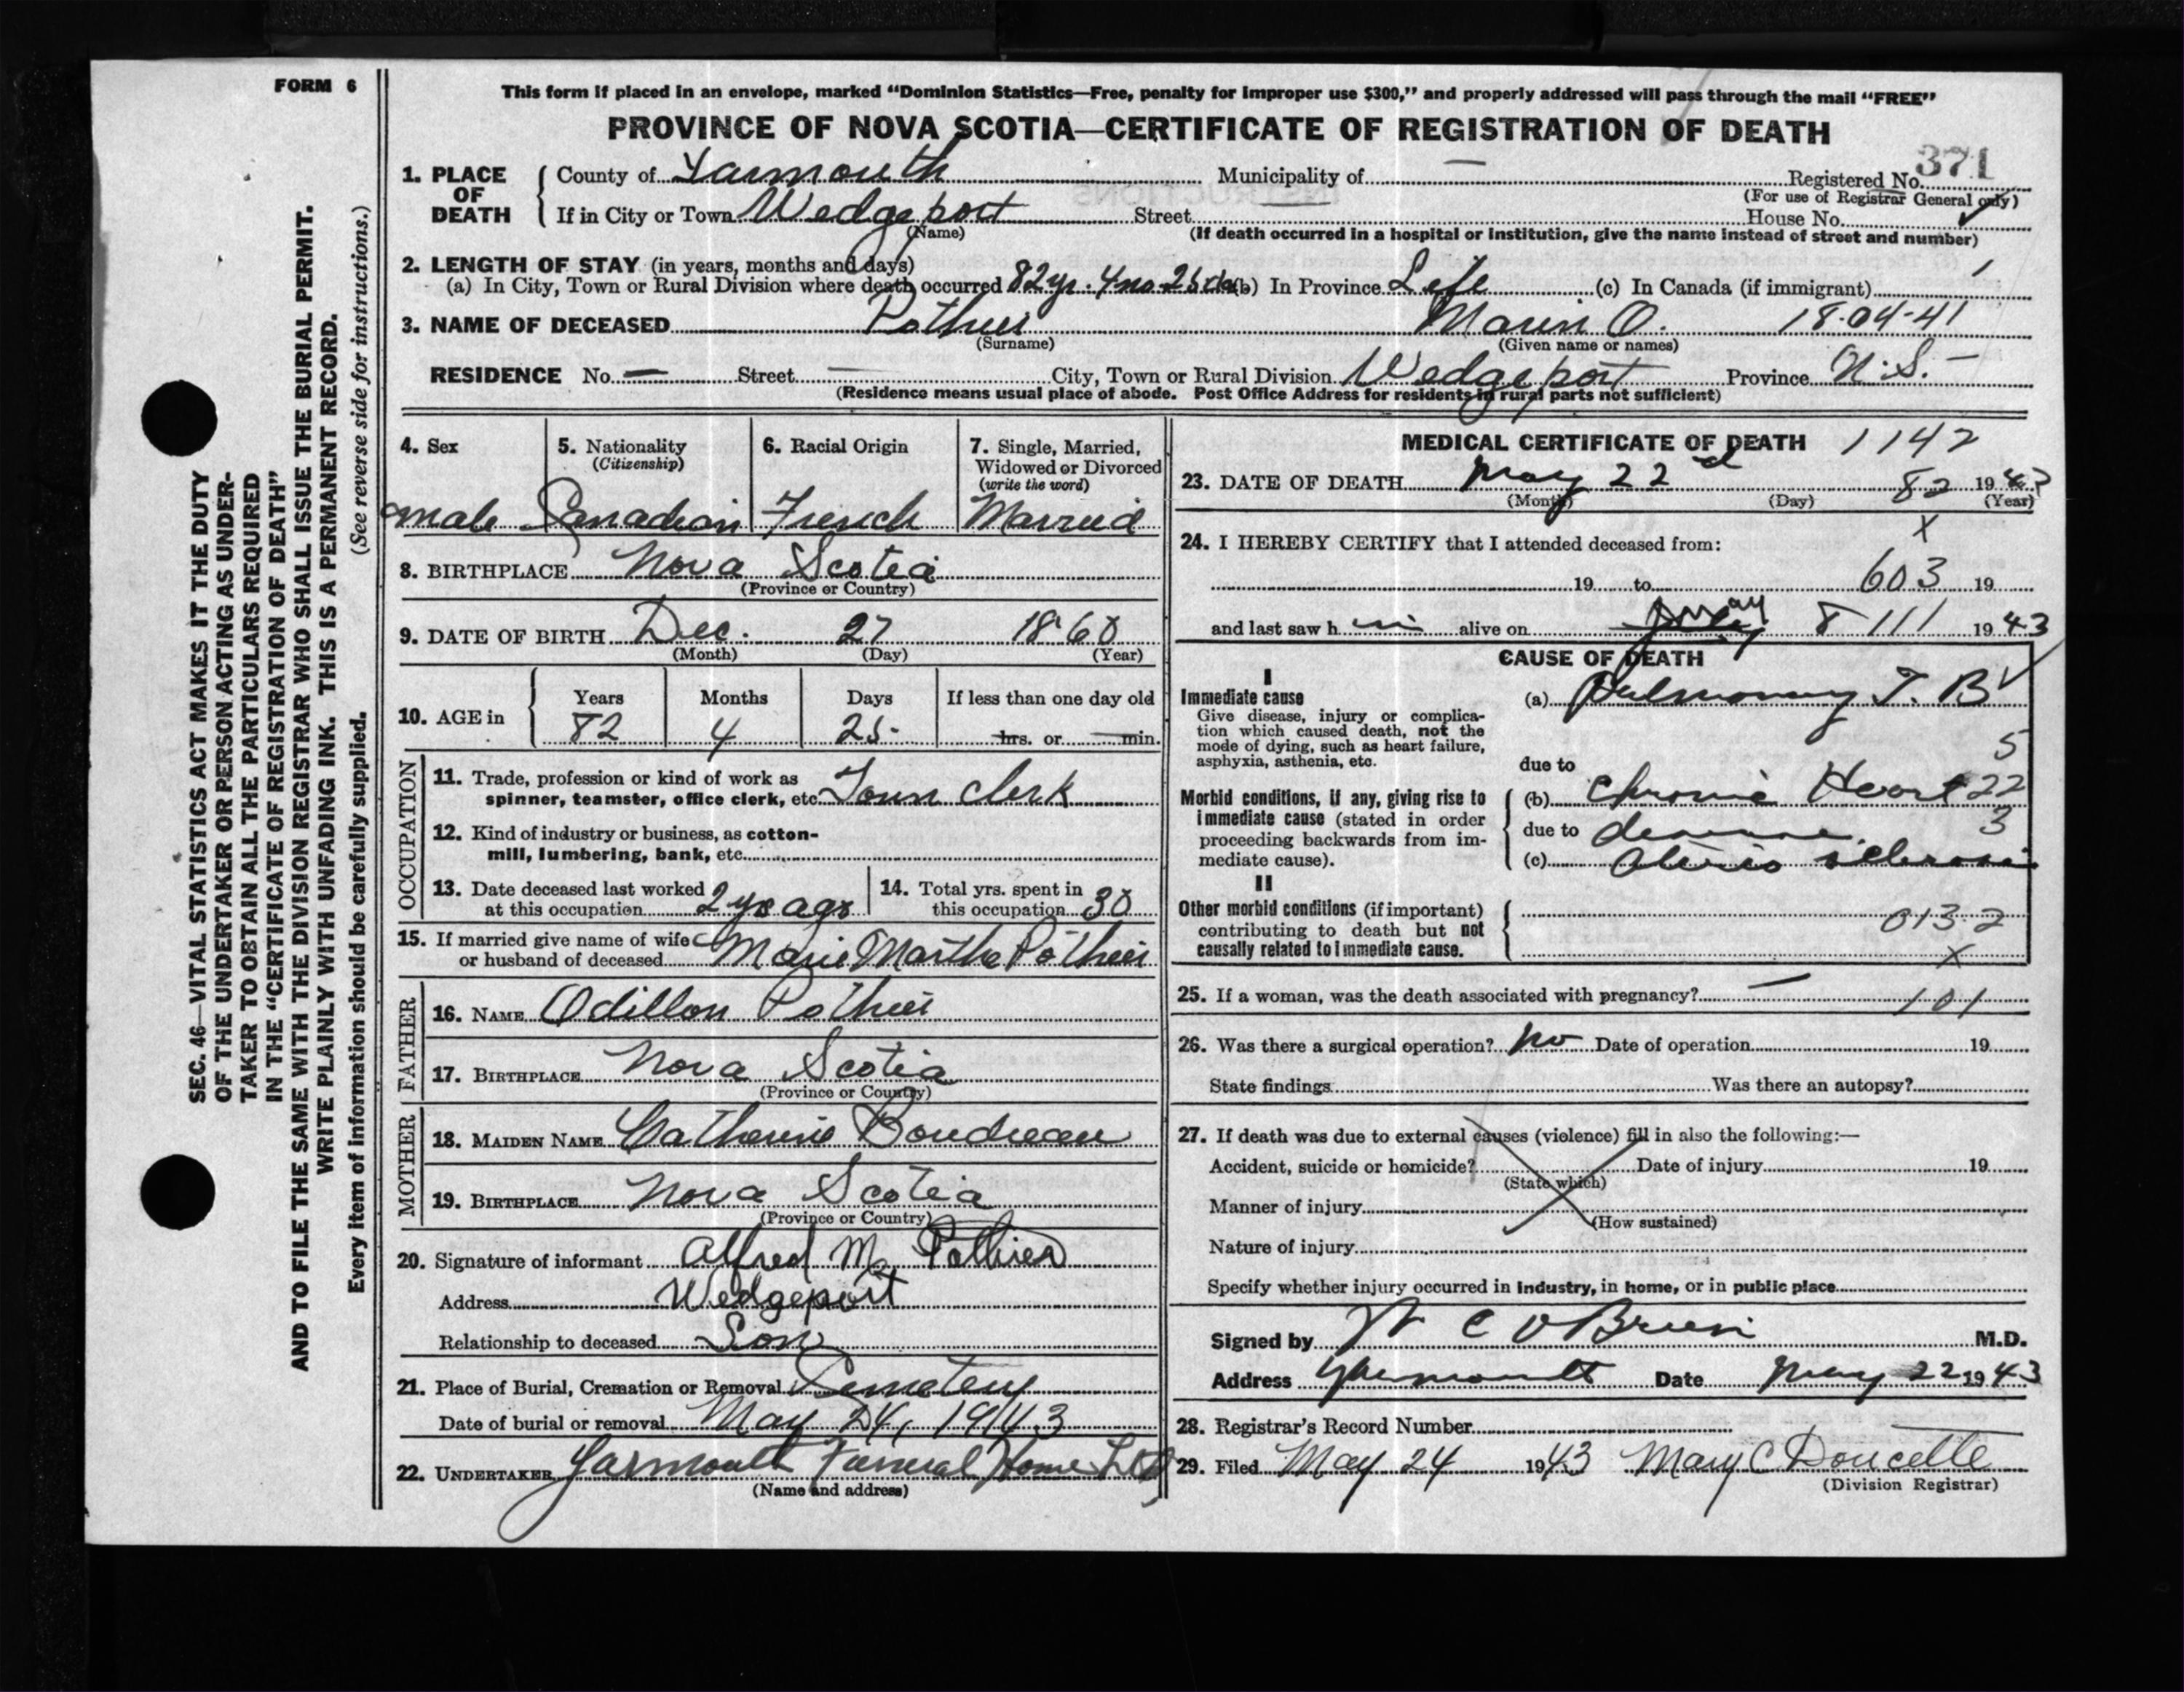 FORM 6
SEC. 46—VITAL STATISTICS ACT MAKES IT THE DUTY
OF THE UNDERTAKER OR PERSON ACTING AS UNDER-
TAKER TO OBTAIN ALL THE PARTICULARS REQUIRED
IN THE "CERTIFICATE OF REGISTRATION OF DEATH"
AND TO FILE THE SAME WITH THE DIVISION REGISTRAR WHO SHALL ISSUE THE BURIAL PERMIT.
WRITE PLAINLY WITH UNFADING INK. THIS IS A PERMANENT RECORD.
Every item of information should be carefully supplied. (See reverse side for instructions.)
This form if placed in an envelope, marked "Dominion Statistics—Free, penalty for improper use $300," and properly addressed will pass through the mail "FREE"
PROVINCE OF NOVA SCOTIA—CERTIFICATE OF REGISTRATION OF DEATH
371
1. PLACE OF DEATH County of Yarmouth Municipality of — Registered No.
(For use of Registrar General only)
If in City or Town Wedgeport Street — House No.
(Name) (If death occurred in a hospital or institution, give the name instead of street and number)
2. LENGTH OF STAY (in years, months and days)
(a) In City, Town or Rural Division where death occurred 82 yr. 4 mo. 25 da (b) In Province Life (c) In Canada (if immigrant)
3. NAME OF DECEASED Pothier Marin O. 18-04-41
(Surname) (Given name or names)
RESIDENCE No. — Street — City, Town or Rural Division Wedgeport Province N.S. —
(Residence means usual place of abode. Post Office Address for residents in rural parts not sufficient)
4. Sex
male
5. Nationality
(Citizenship)
Canadian
6. Racial Origin
French
7. Single, Married,
Widowed or Divorced
(write the word)
Married
8. BIRTHPLACE Nova Scotia
(Province or Country)
9. DATE OF BIRTH Dec. 27 1860
(Month) (Day) (Year)
10. AGE in
Years Months Days If less than one day old
82 4 25 — hrs. or — min.
OCCUPATION
11. Trade, profession or kind of work as
spinner, teamster, office clerk, etc. Town clerk
12. Kind of industry or business, as cotton-
mill, lumbering, bank, etc.
13. Date deceased last worked
at this occupation 2 yrs ago
14. Total yrs. spent in
this occupation 30
15. If married give name of wife
or husband of deceased Marie Marthe Pothier
FATHER
16. NAME Odillon Pothier
17. BIRTHPLACE Nova Scotia
(Province or Country)
MOTHER
18. MAIDEN NAME Catherine Boudreau
19. BIRTHPLACE Nova Scotia
(Province or Country)
20. Signature of informant Alfred M. Pothier
Address Wedgeport
Relationship to deceased Son
21. Place of Burial, Cremation or Removal Cemetery
Date of burial or removal May 24, 1943
22. UNDERTAKER Yarmouth Funeral Home Ltd
(Name and address)
MEDICAL CERTIFICATE OF DEATH 1142
23. DATE OF DEATH May 22nd 82 1943
(Month) (Day) (Year)
X
24. I HEREBY CERTIFY that I attended deceased from:
19 to 603 19
and last saw him alive on May 8 111 1943
CAUSE OF DEATH
I
Immediate cause
Give disease, injury or complica-
tion which caused death, not the
mode of dying, such as heart failure,
asphyxia, asthenia, etc.
(a) Pulmonary T. B
5
due to
Morbid conditions, if any, giving rise to
immediate cause (stated in order
proceeding backwards from im-
mediate cause).
(b) Chronic Heart 22
due to disease 3
(c) Arterio sclerosis
II
Other morbid conditions (if important)
contributing to death but not
causally related to immediate cause.
013.2
X
25. If a woman, was the death associated with pregnancy? — 101
26. Was there a surgical operation? No Date of operation 19
State findings Was there an autopsy?
27. If death was due to external causes (violence) fill in also the following:—
Accident, suicide or homicide? Date of injury 19
(State which)
Manner of injury
(How sustained)
Nature of injury
Specify whether injury occurred in industry, in home, or in public place
Signed by W C O'Brien M.D.
Address Yarmouth Date May 22 1943
28. Registrar's Record Number
29. Filed May 24 1943 Mary C Doucette
(Division Registrar)